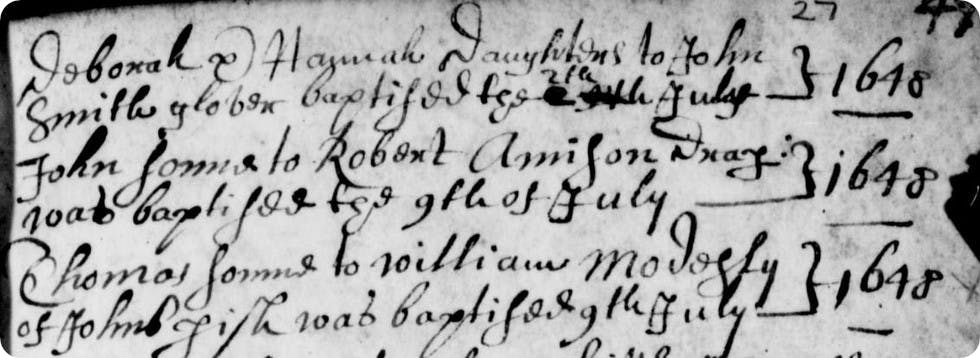 27 47
Deborah & Hannah Daughters to John
Smith glover baptised the 2th July } 1648
John sonne to Robert Amison Drap:
was baptised the 9th of July } 1648
Thomas sonne to william Modesty
of Johns pish was baptised 9th July } 1648